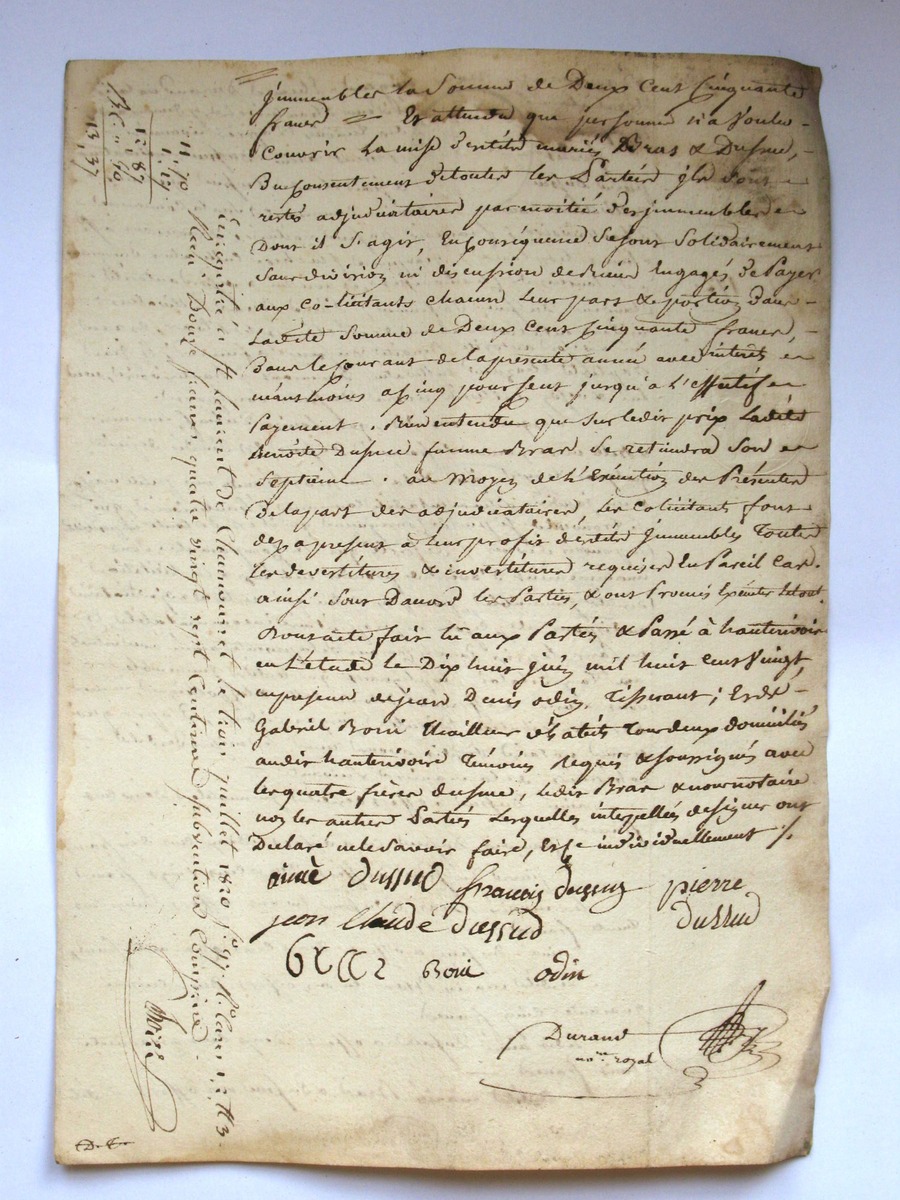 jmmeubles la Somme de Deux Cent Cinquante
francs = Et attendu que personne n'a Voulu
Couvrir la mise desdits mariés Bras & Dussud,
Du Consentement de toutes les Parties ils sont
restés adjudicataires par moitié des jmmeubles
Dont il S'agit, En Conséquence Se sont Solidairement
Sans division ni discussion de biens Engagés de Payer
aux Co-licitants chacun leur part & portion dans
Ladite Somme de Deux Cent Cinquante francs,
Dans le Courant de la présente année avec interêts
néantmoins a Cinq pour Cent jusqu'a l'effectif
Payement. Bien entendu que sur ledit prix Ladite
benoite Dussud femme Bras Se retiendra Son
Septieme. au Moyen de l'Exécution des Présentes
De la part des adjudicataires, les Colicitants font
des a présent à leur profit desdits Jmmeubles Toutes
les devestitures & investitures requises En Pareil Cas.
ainsi Sont D'accord les Parties, & ont Promis Exécuter le tout.
Dont acte fait lu aux Parties & Passé à hauterivoire
en L'étude le Dix huit juin mil huit cent Vingt,
en présence de jean Denis odin Tisserant; Et de
Gabriel Boiri thailleur d'habits Tous deux domiciliés
audit hauterivoire Témoins Requis & soussignés avec
les quatre frères dussud, ledit Bras & nous notaire
non les autres Parties Lesquelles interpellées de signer ont
Déclaré ne le Savoir faire, Et ce individuellement ./.
aimé dussud françois dussud pierre
jean Claude dussud dussud
Boiri odin
Durand
no.re royal
Enregistré à St Laurent de Chamousset le trois juillet 1820 f.o 97 R.o Cases 1, 2 & 3
Reçu Douze francs quatre vingt sept Centimes Subvention Comprise.
11,70
1,17
12,87
13,37